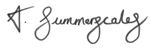 A. Summerscales